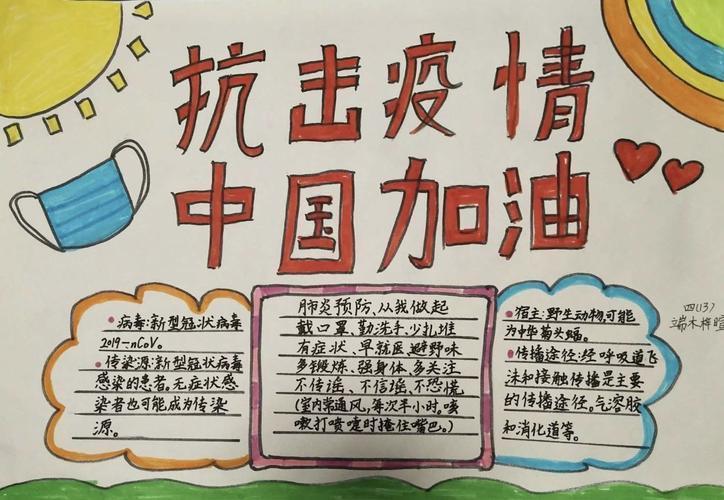 抗击疫情
中国加油
• 病毒:新型冠状病毒
2019-nCoV。
• 传染源:新型冠状病毒
感染的患者。无症状感
染者也可能成为传染
源。
肺炎预防、从我做起
戴口罩、勤洗手、少扎堆
有症状、早就医、避野味
多锻炼、强身体、多关注
不传谣、不信谣、不恐慌
(室内常通风,每次半小时。咳
嗽打喷嚏时掩住嘴巴。)
• 宿主:野生动物,可能
为中华菊头蝠。
• 传播途径:经呼吸道飞
沫和接触传播是主要
的传播途径。气溶胶
和消化道等。
四(13)
端木梓暄